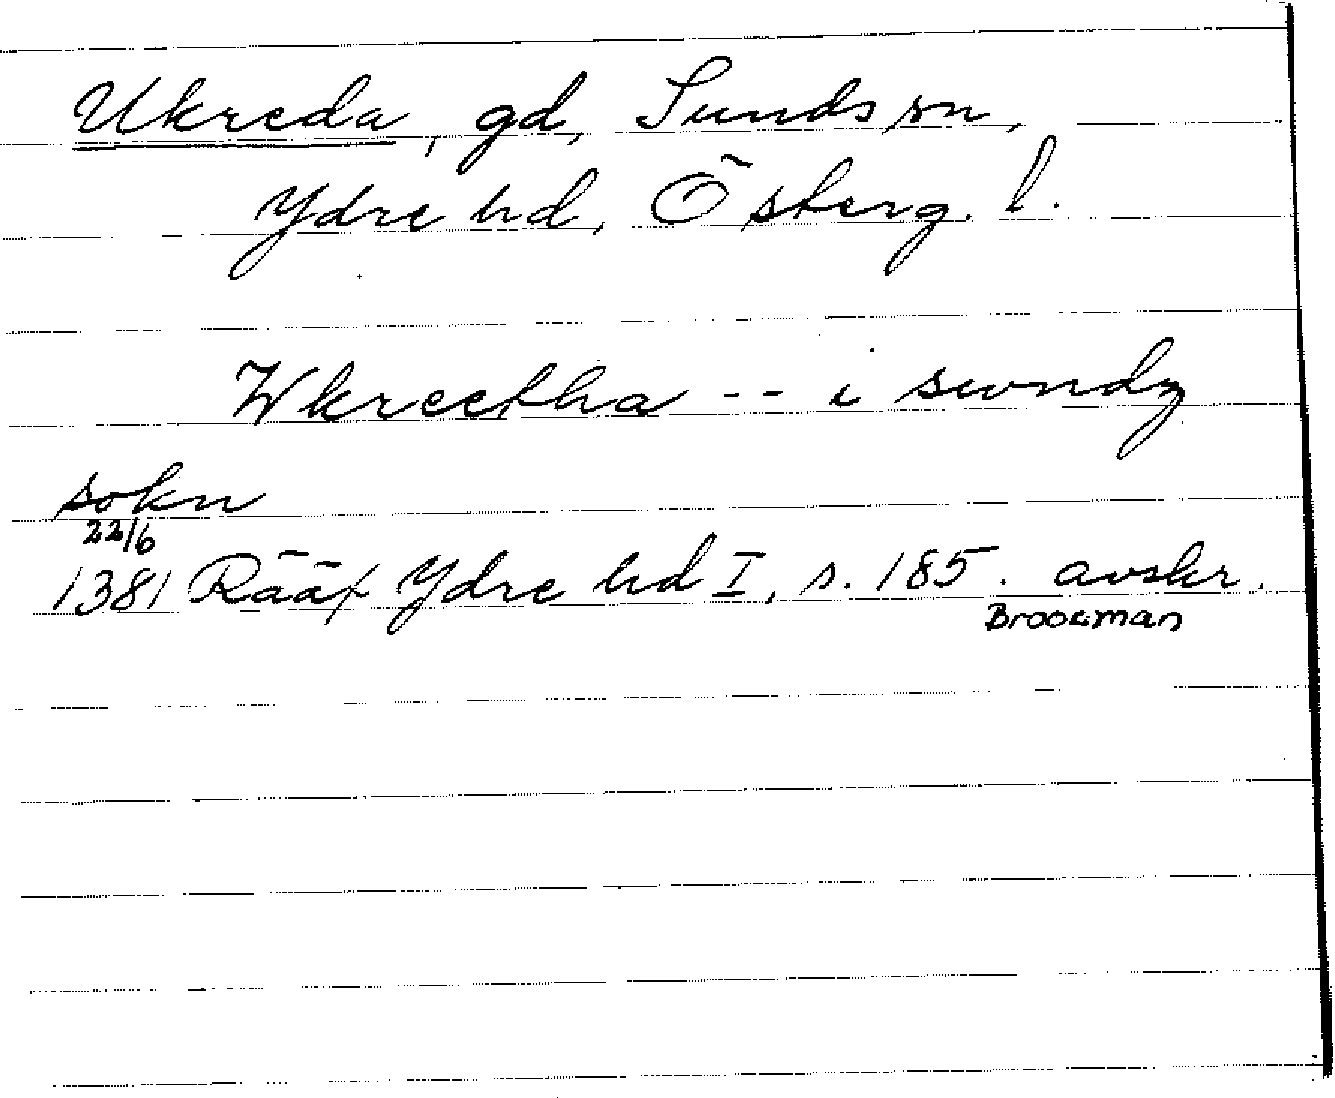 Ukreda, gd, Sunds sn,
Ydre hd, Österg. l.
Wkreetha -- i swndz
sokn
22/6
1381 Rääf Ydre hd I, s. 185. avskr.
Broocman